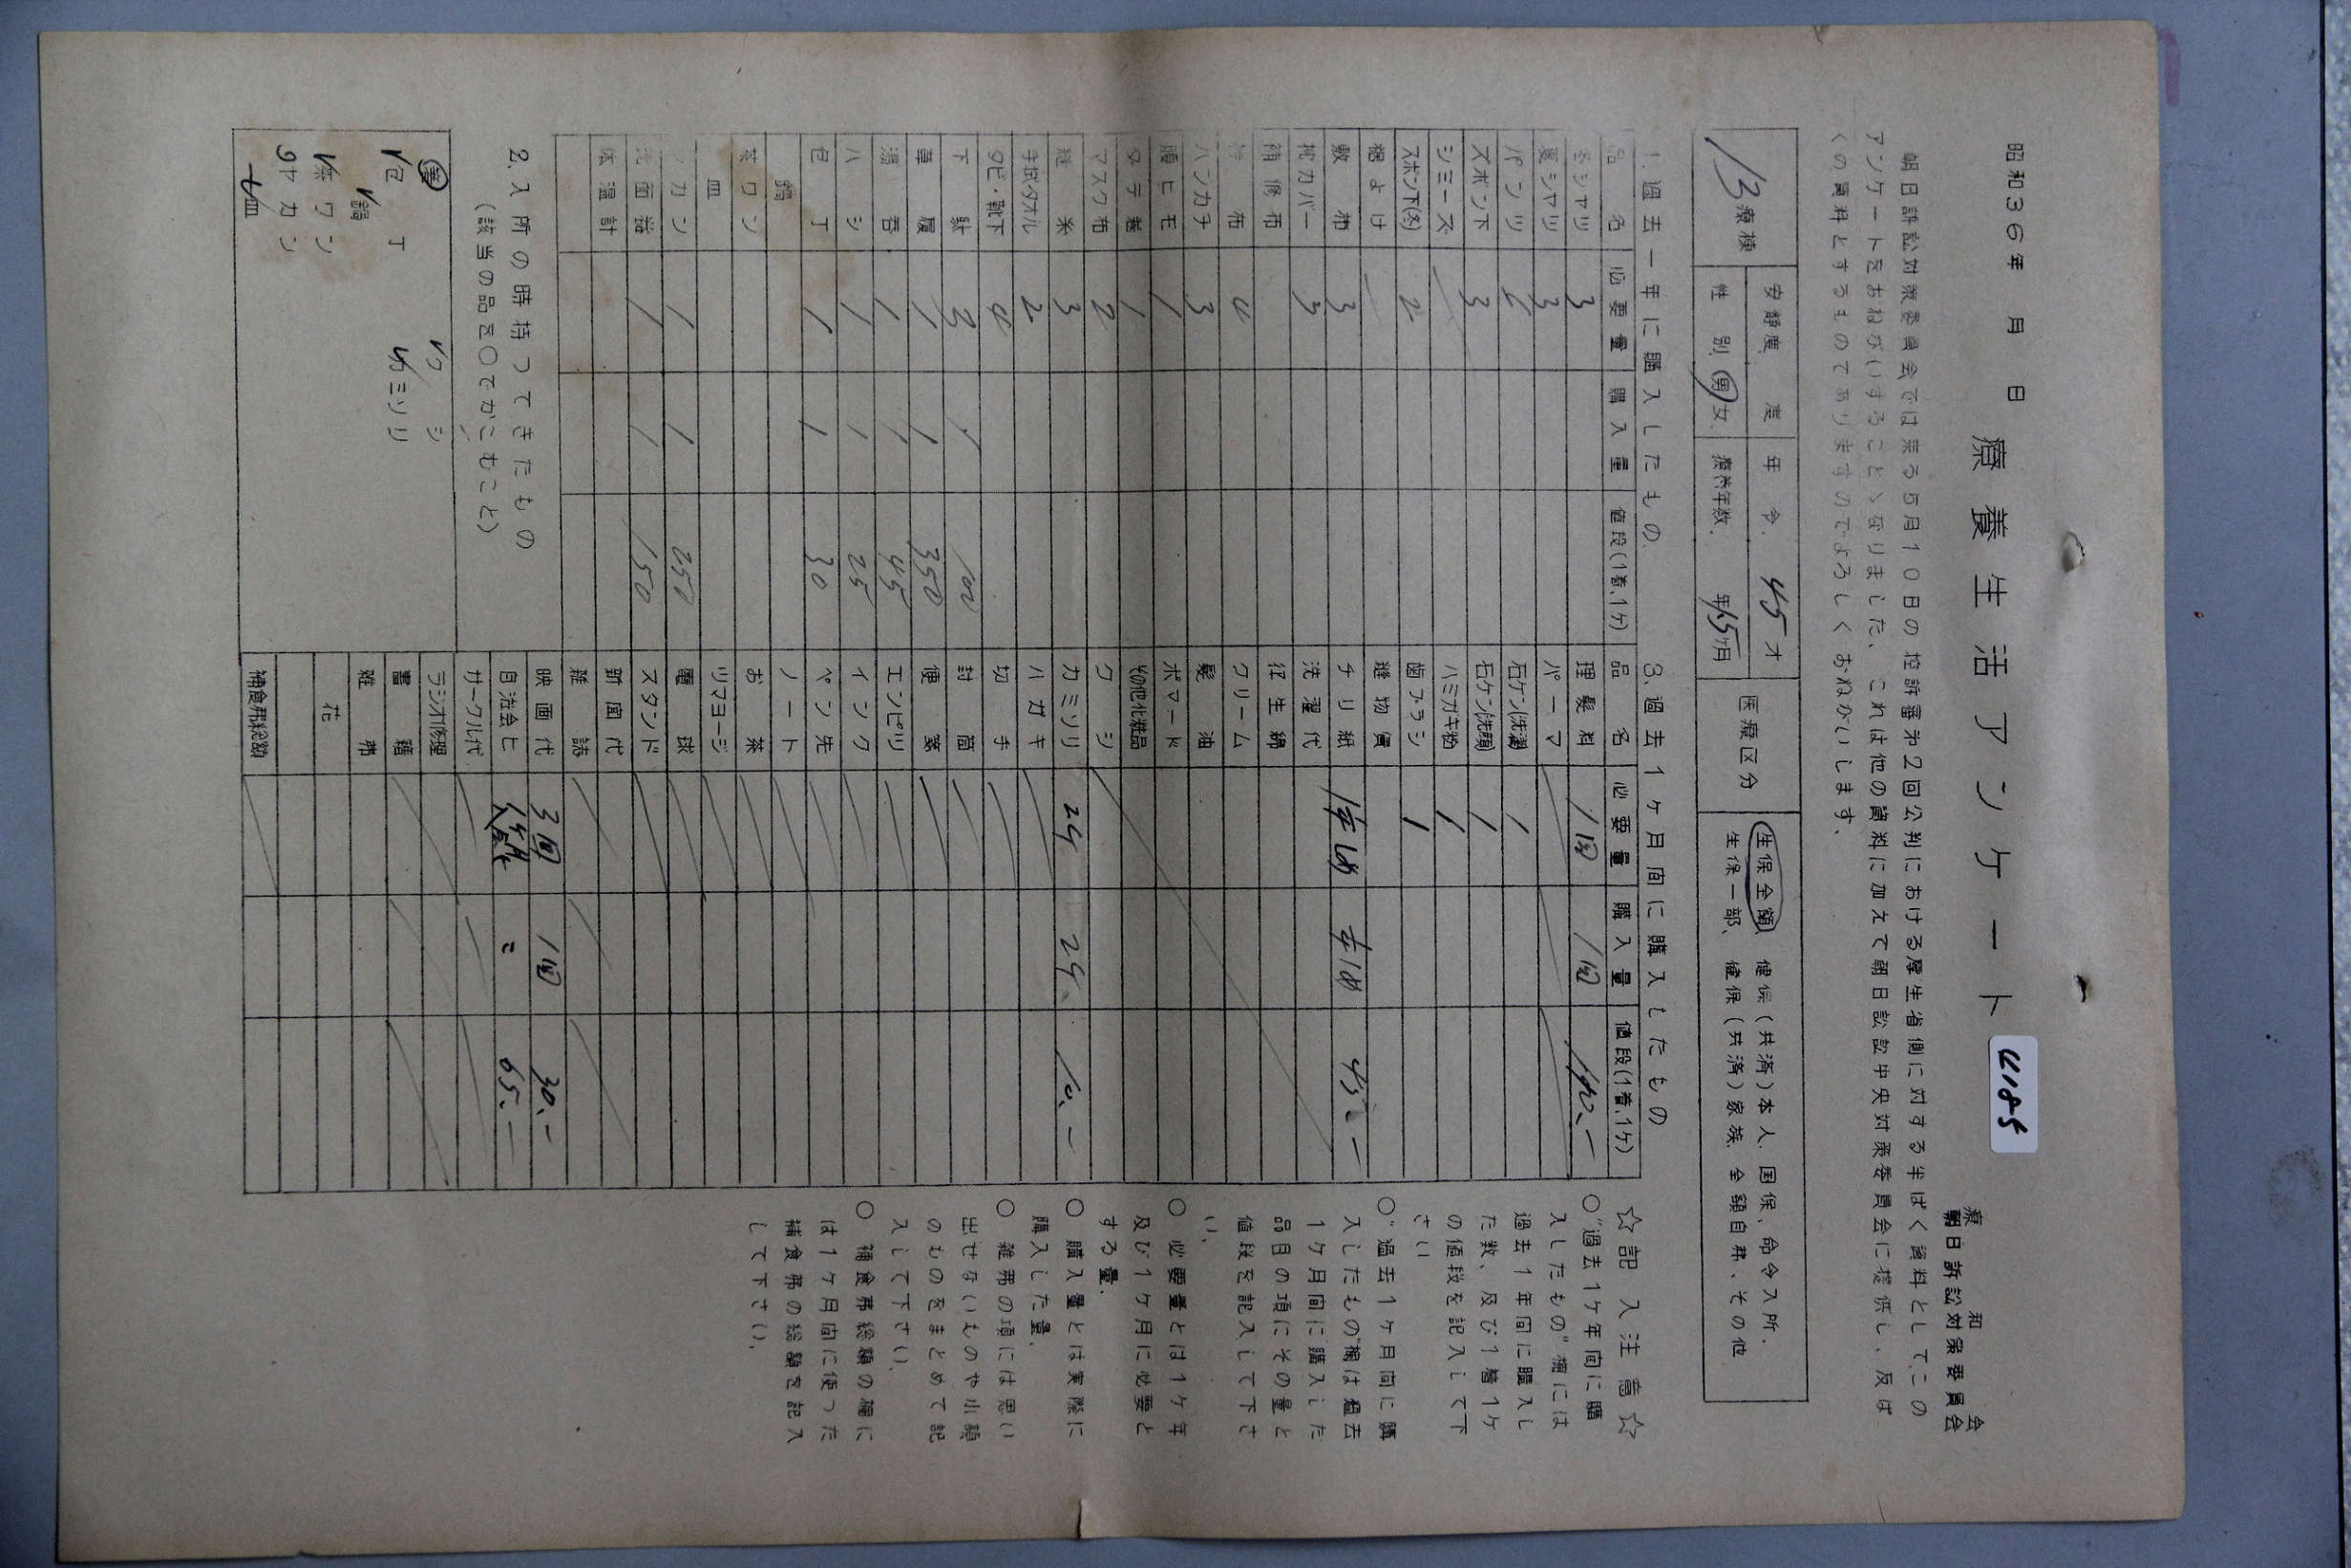 昭和36年 月 日
療養生活アンケート
4185
療和会
朝日訴訟対策委員会
朝日訴訟対策委員会では来る5月10日の控訴審才2回公判における厚生省側に対する半ばく資料としてこの
アンケートをおねがいすることゝなりました、これは他の資料に加えて朝日訴訟中央対策委員会に提供し、反ば
くの資料とするものでありますのでよろしくおねがいします、
13療棟
安静度 度
年令 45才
医療区分
生保全額 健保(共済)本人、国保、命令入所、
性別 男 女
療養年数 年15ケ月
生保一部、健保(共済)家族、全額自弗、その他
1. 過去一年に購入したもの
品名 必要量 購入量 値段(1着、1ケ)
冬シャツ 3
夏シャツ 3
パンツ 6
ズボン下 3
シミーズ
ズボン下(冬) 2
裾よけ
敷布 3
枕カバー 3
補修布
布 4
ハンカチ 3
腰ヒモ 1
タテ巻 1
マスク布 2
毛糸 3
手拭タオル 2
タビ・靴下 4
下駄 3 1 100
草履 1 1 350
湯呑 1 1 45
ハシ 1 1 25
包丁 1 1 30
鍋
茶ワン
皿
ヤカン 1 1 250
洗面器 1 1 150
体温計
2. 入所の時持つてきたもの
(該当の品を○でかこむこと)
箸 クシ
包丁 カミソリ
鍋
茶ワン
ヤカン
皿
3. 過去1ヶ月間に購入したもの
品名 必要量 購入量 値段(1着、1ケ)
理髪料 1回 1回 140.-
パーマ
石ケン(洗濯) 1
石ケン(洗顔) 1
ハミガキ粉 1
歯ブラシ 1
縫物賃
チリ紙 45.-
洗濯代
衛生綿
クリーム
髪油
ポマード
その他化粧品
クシ
カミソリ 2ケ 2ケ 10.-
ハガキ
切手
封筒
便箋
エンピツ
インク
ペン先
ノート
お茶
ツマヨージ
電球
スタンド
新聞代
雑誌
映画代 3回 1回 30.-
自治会ヒ 65.-
サークル代
ラジオ修理
書籍
雑弗
花
補食弗総額
☆記入注意☆
○“過去1ケ年間に購
入したもの”欄には
過去1年間に購入し
た数、及び1着1ケ
の値段を記入して下
さい
○“過去1ヶ月間に購
入したもの”欄は過去
1ケ月間に購入した
品目の項にその量と
値段を記入して下さ
い、
○ 必要量とは1ケ年
及び1ケ月に必要と
する量、
○ 購入量とは実際に
購入した量、
○ 雑弗の項には思い
出せないものや小額
のものをまとめて記
入して下さい、
○ 補食弗総額の欄に
は1ケ月間に使った
補食弗の総額を記入
して下さい、